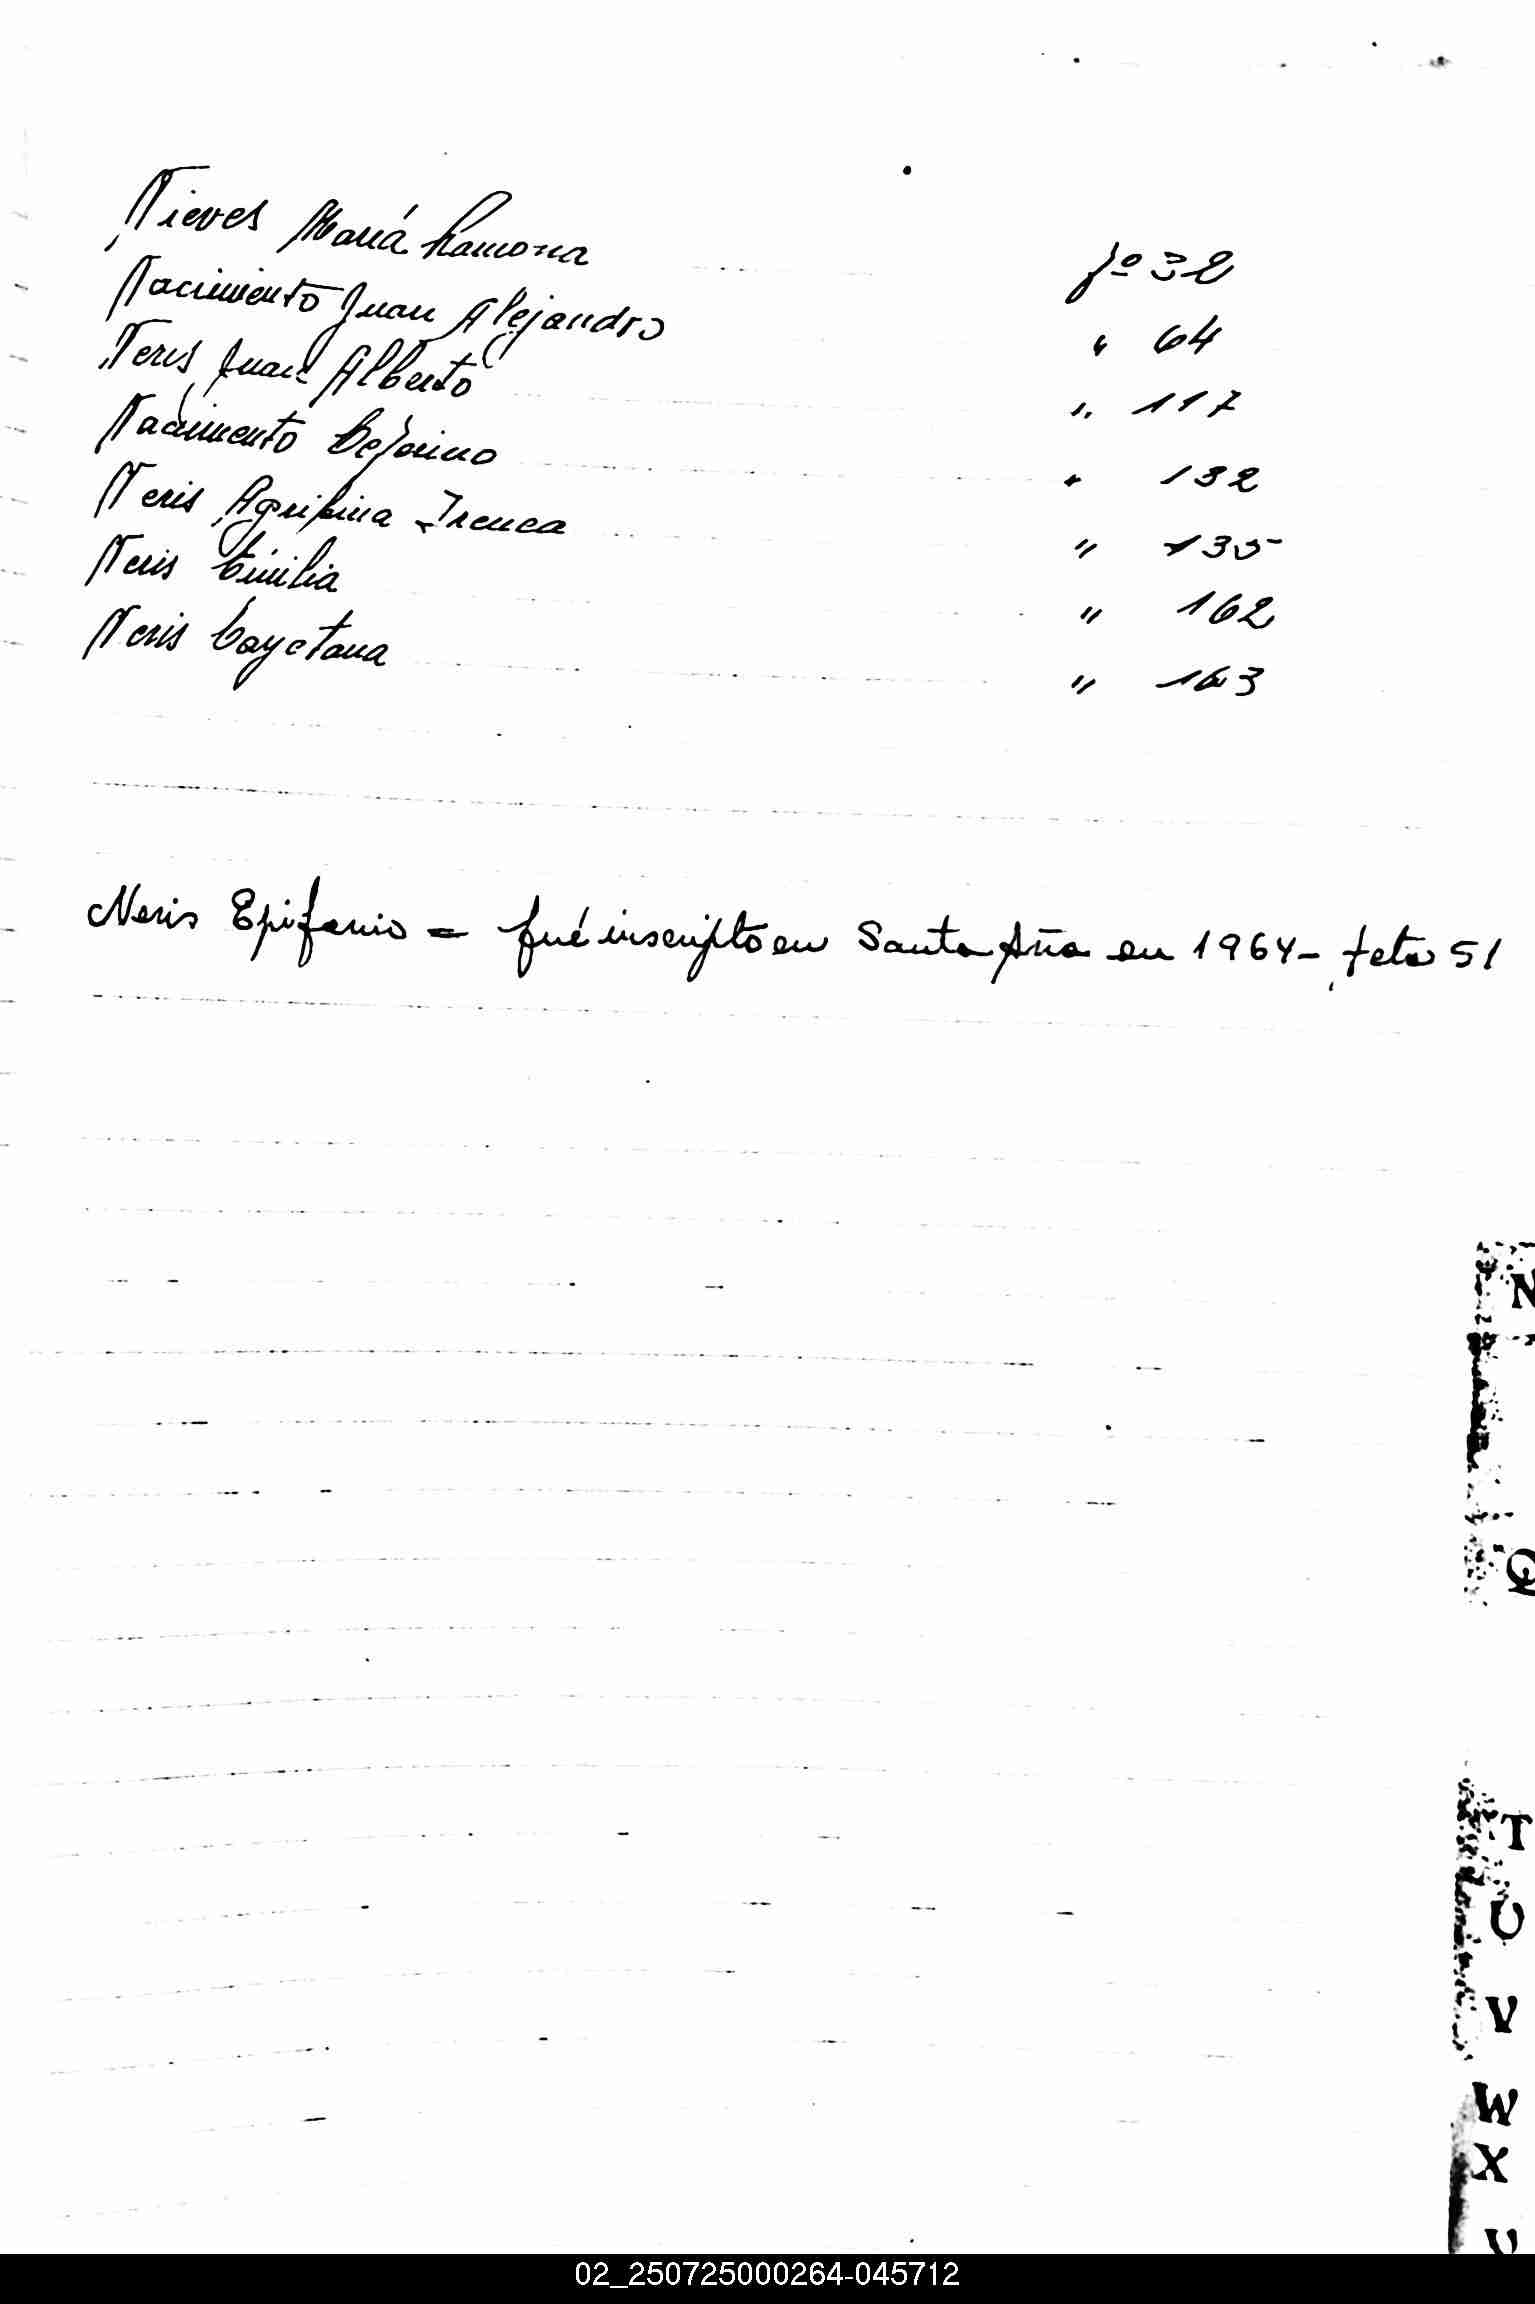 Nieves María Ramona fº 32
Nacimiento Juan Alejandro " 64
Neris Juan Alberto " 117
Nacimiento Ceferino " 132
Neris Agripina Irenea " 135
Neris Emilia " 162
Neris Cayetana " 163
Neris Epifanio = fué inscripto en Santa Aña en 1964 - feta 51
N
Q
T
U
V
W
X
02_250725000264-045712